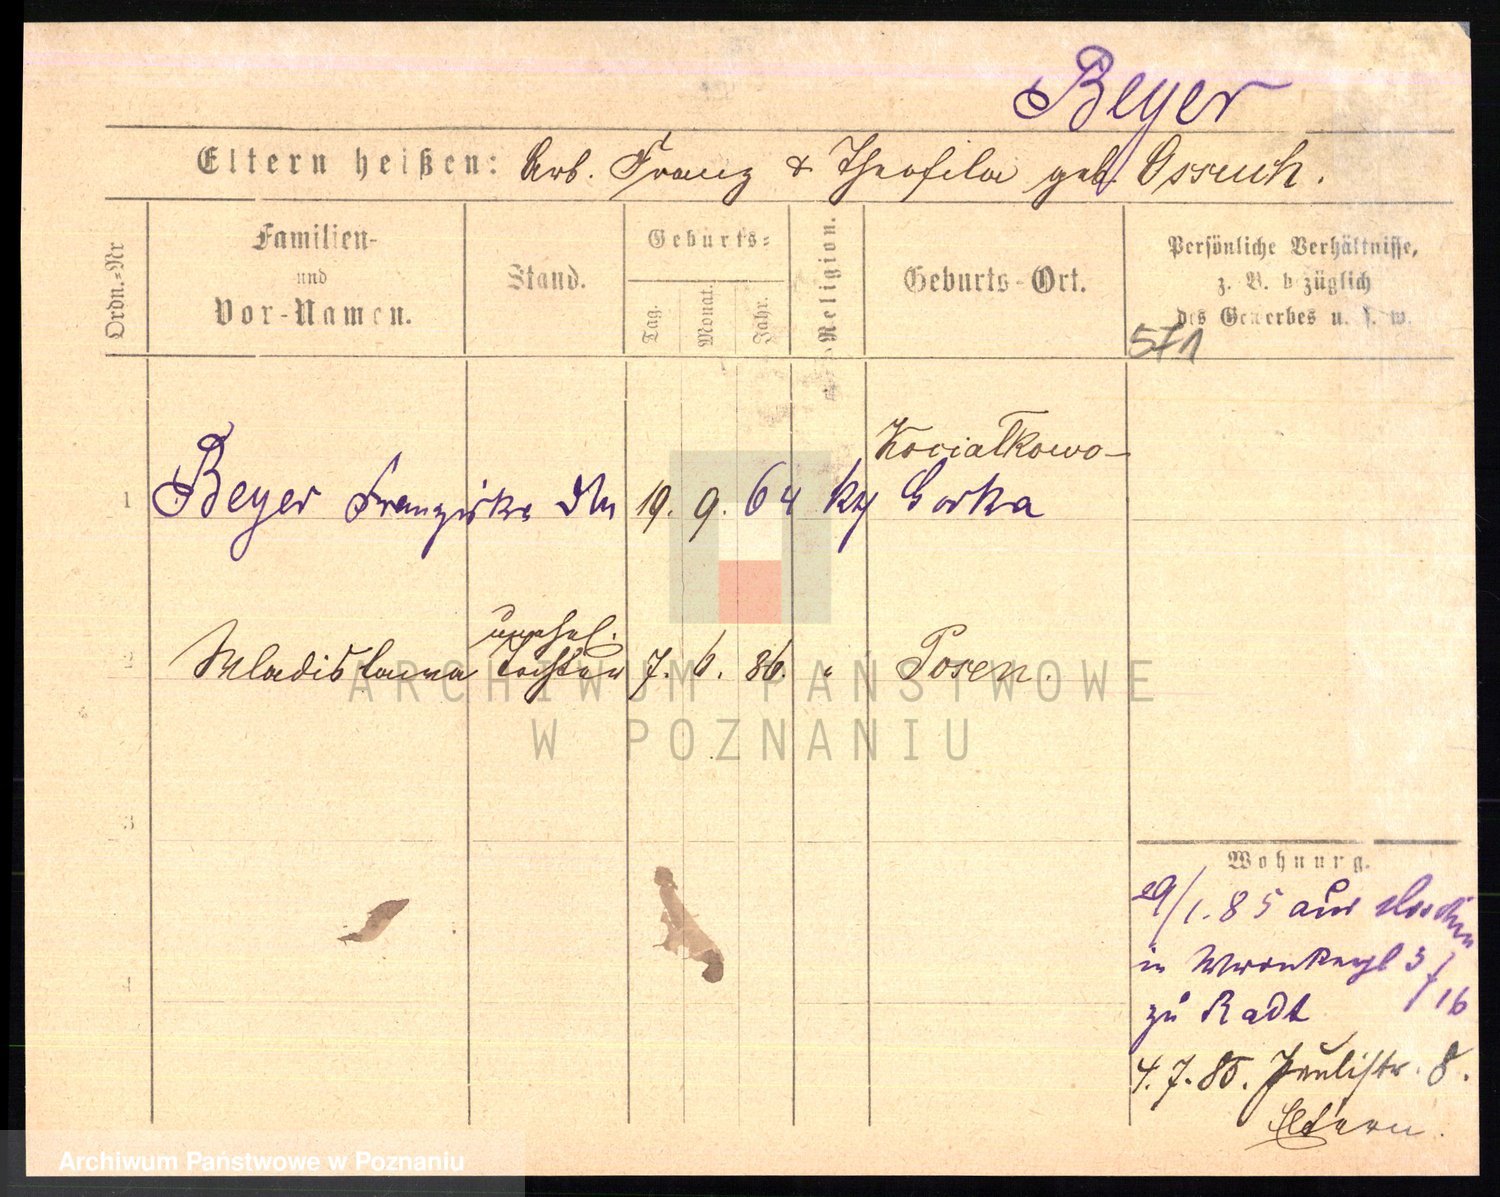 Beyer
Eltern heißen: Arb. Franz & Theofila geb. Ossuch.
Ordn.-Nr
Familien-
und
Vor-Namen.
Stand.
Geburts-
Tag.
Monat.
Jahr.
Religion.
Geburts-Ort.
Persönliche Verhältnisse,
z. B. bezüglich
des Gewerbes u. s. w.
571
Kociałkowo-
1 Beyer Franziska 19. 9. 64 kth Gorka
unehel.
2 Wladislawa Tochter 7. 6. 86. " Posen.
3
4
Wohnung.
29/1. 85 aus
in Wronkerpl 3/16
zu Radt
4. 7. 85. Paulistr. 8.
Eltern.
ARCHIWUM PAŃSTWOWE
W POZNANIU
Archiwum Państwowe w Poznaniu